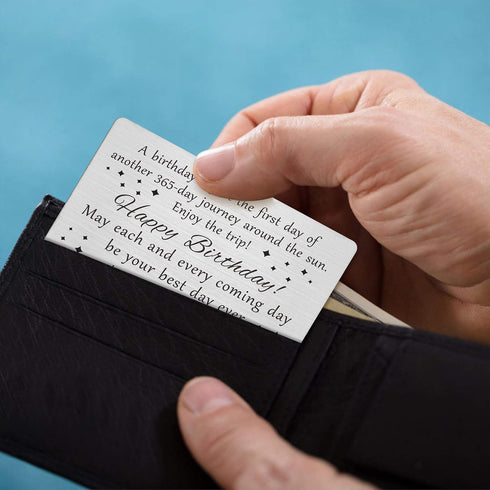 A birthday the first day of
another 365-day journey around the sun.
Enjoy the trip!
Happy Birthday!
May each and every coming day
be your best day ever